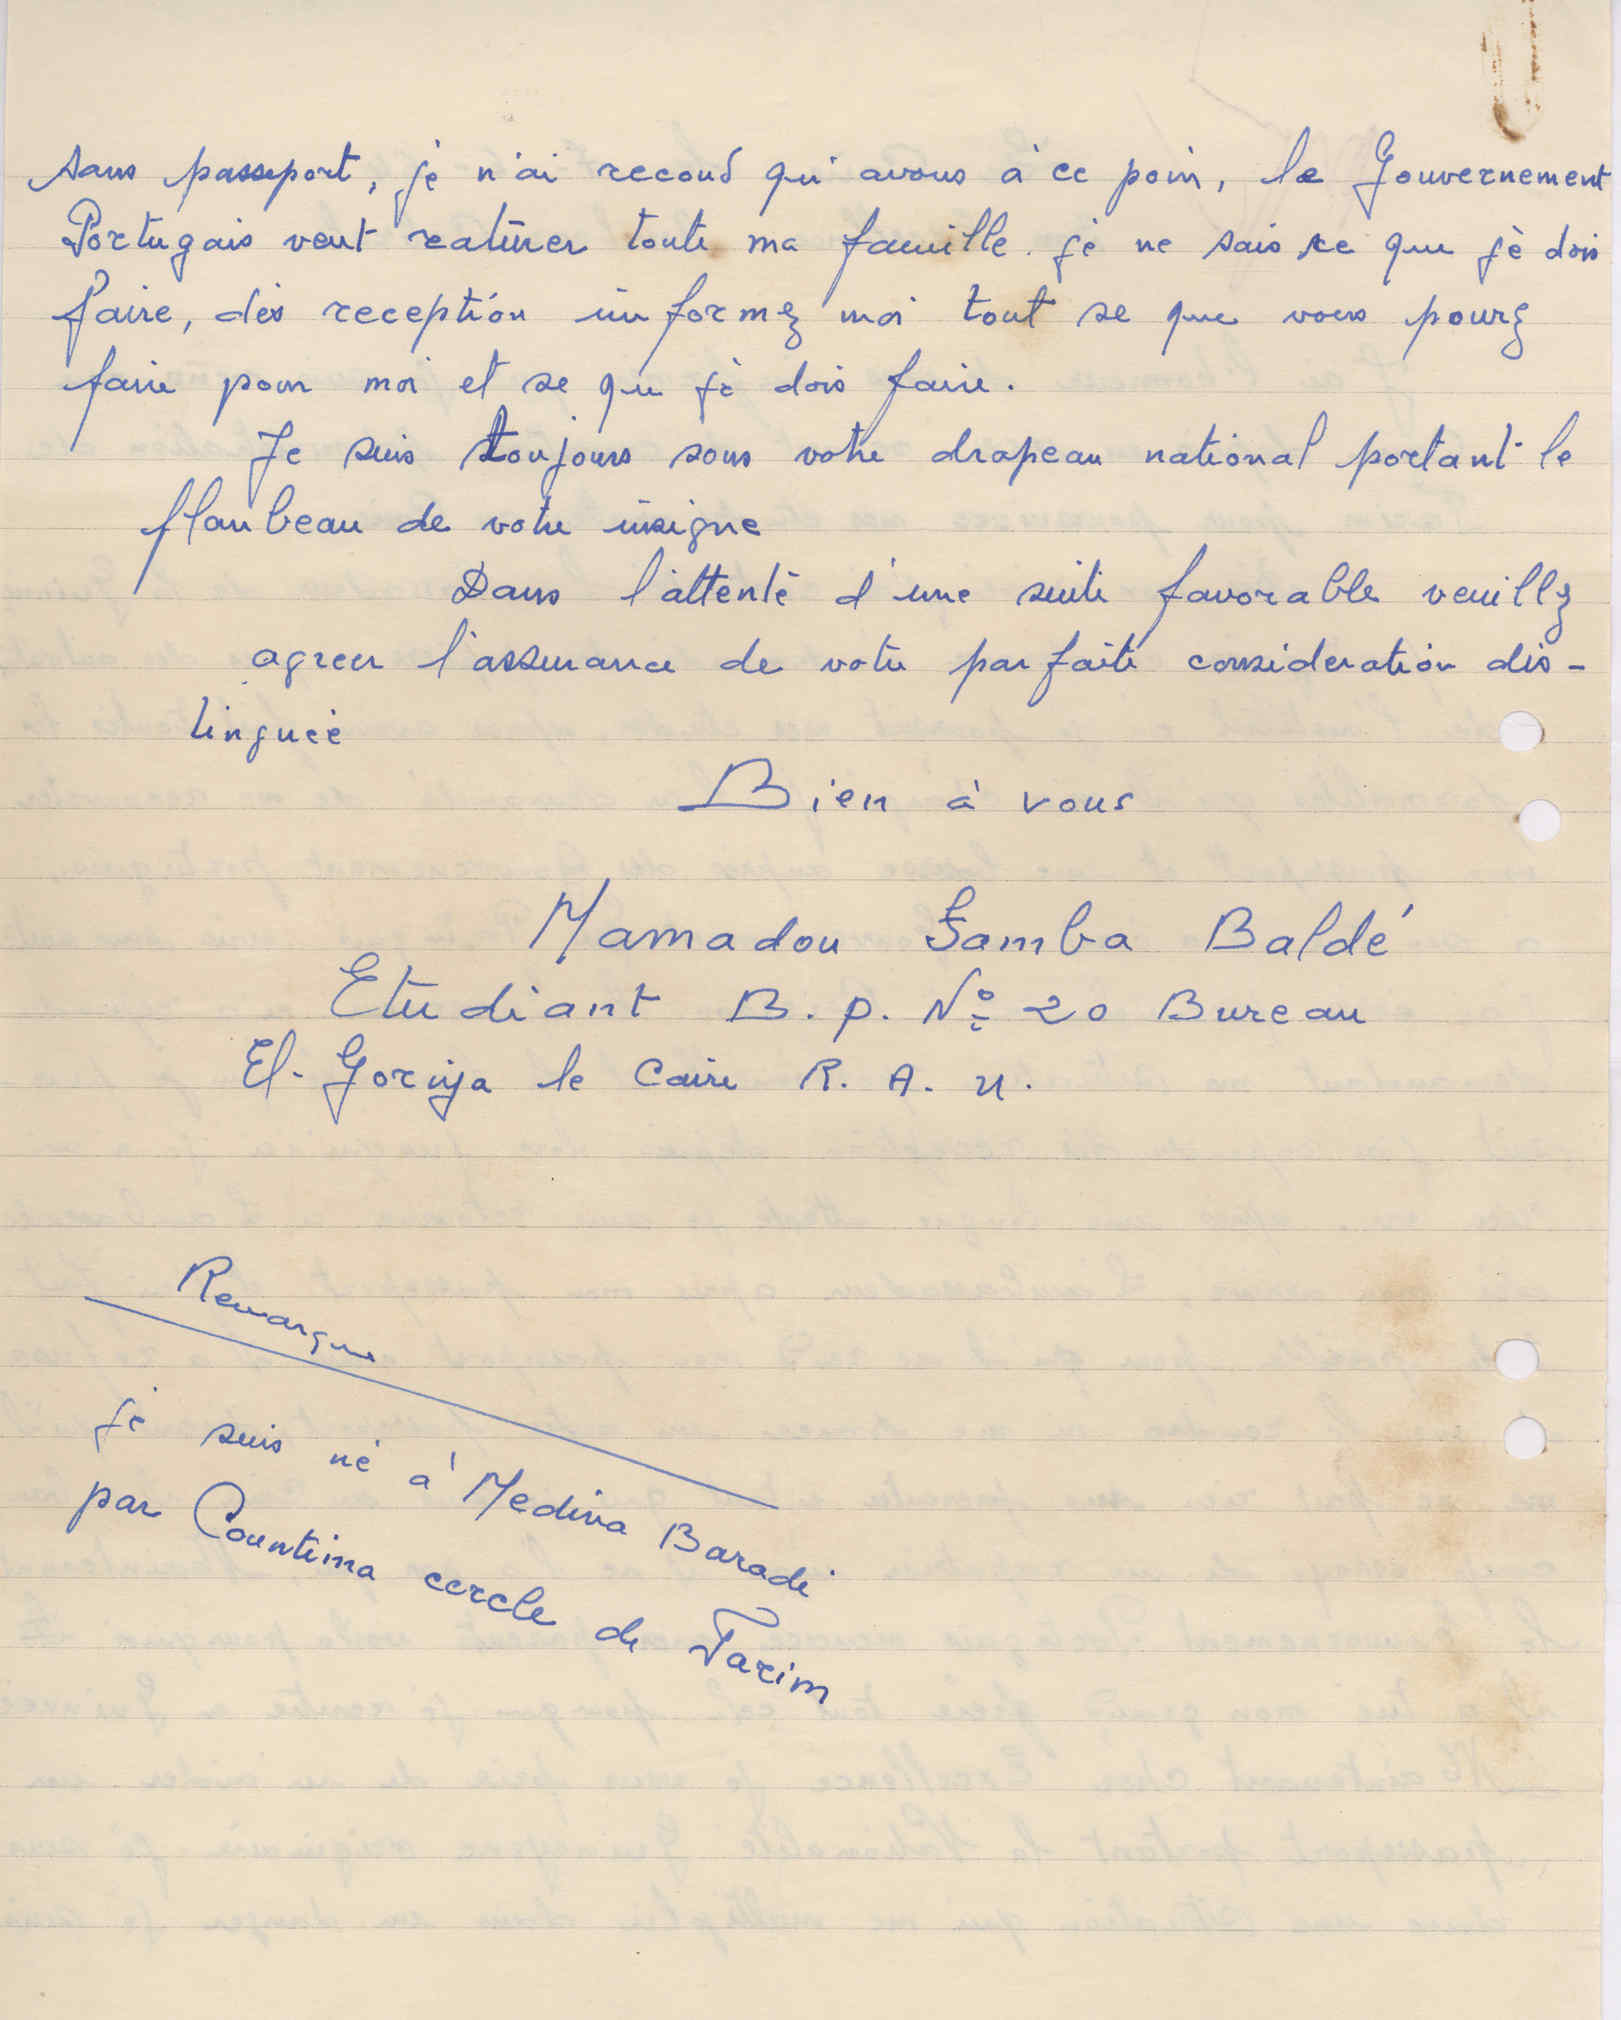 sans passeport, jè n'ai recoud qu'avous à ce poin, le Gouvernement
Portugais veut ratirer toute ma famille. jè ne sais ce que jè dois
faire, dès reception informez moi tout se que vous pourz
faire pour moi et se que jè dois faire.
Je suis toujours sous votre drapeau national portant le
flanbeau de votre insigne
Dans l'attente d'une suite favorable veuillz
agreer l'assurance de votre parfaite consideration dis-
tinguée
Bien à vous
Mamadou Samba Baldé
Etudiant B.P. Nº 20 Bureau
El-Goriya le Caire R. A. U.
Remarque
jè suis né à Medina Baradi
par Countima cercle de Farim